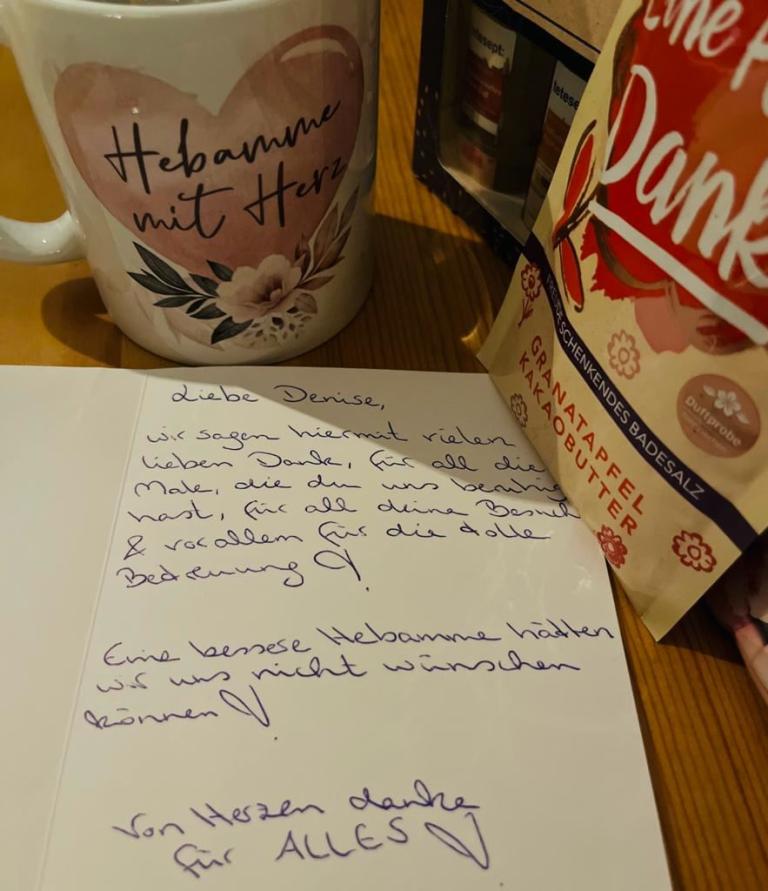 Hebamme
mit Herz
tetesept:
tetese
Eine P
Dank
FREUDESCHENKENDES BADESALZ
GRANATAPFEL
KAKAOBUTTER
Duftprobe
Liebe Denise,
wir sagen hiermit vielen
lieben Dank, für all die
Male, die du uns beruhig
hast, für all deine Besuch
& vor allem für die tolle
Betreuung
Eine bessere Hebamme hätten
wir uns nicht wünschen
können
Von Herzen danke
für ALLES